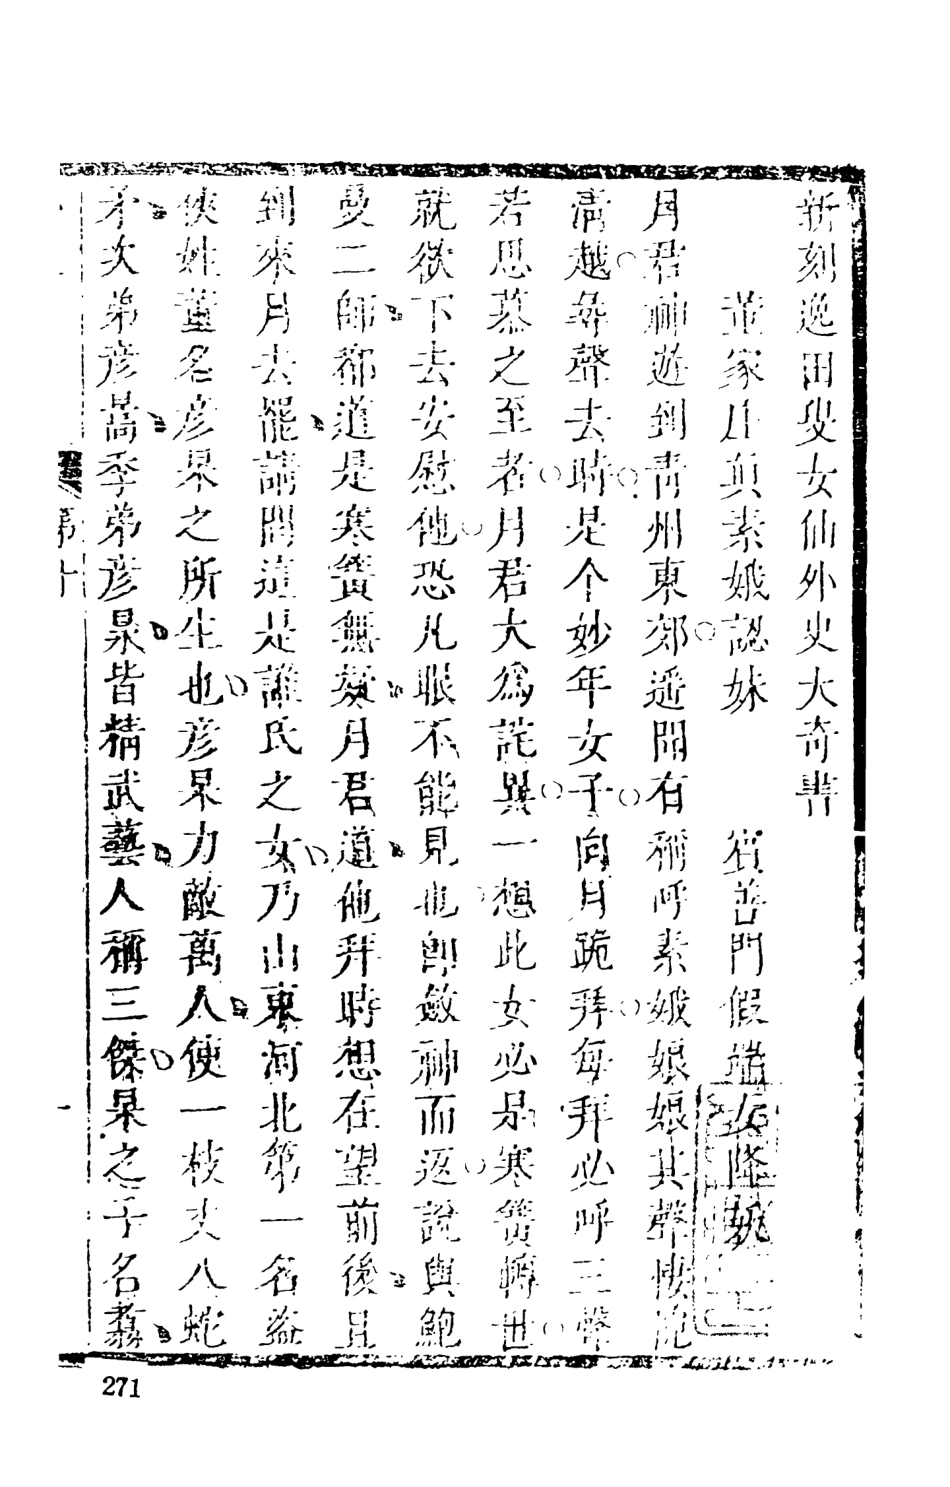 新刻逸田叟女仙外史大奇書
董家庄真素娥認妹　賓善門假端女降妖
月君神遊到靑州東郊遥聞有稱呼素娥娘娘其聲悽
清越尋聲去時是个妙年女子向月跪拜每拜必呼三聲
若思慕之至者月君大爲詫異一想此女必是寒簧轉世
就欲下去安慰他恐凡眼不能見也卽斂神而返說與鮑
曼二師都道是寒簧無疑月君道他拜時想在望前後且
到來月去罷請問這是誰氏之女乃山東河北第一名盜
俠姓董名彦杲之所生也彦杲力敵萬人使一枝丈八蛇
矛次弟彦暠季弟彦杲皆精武藝人稱三傑杲之子名翥
第十
一
271